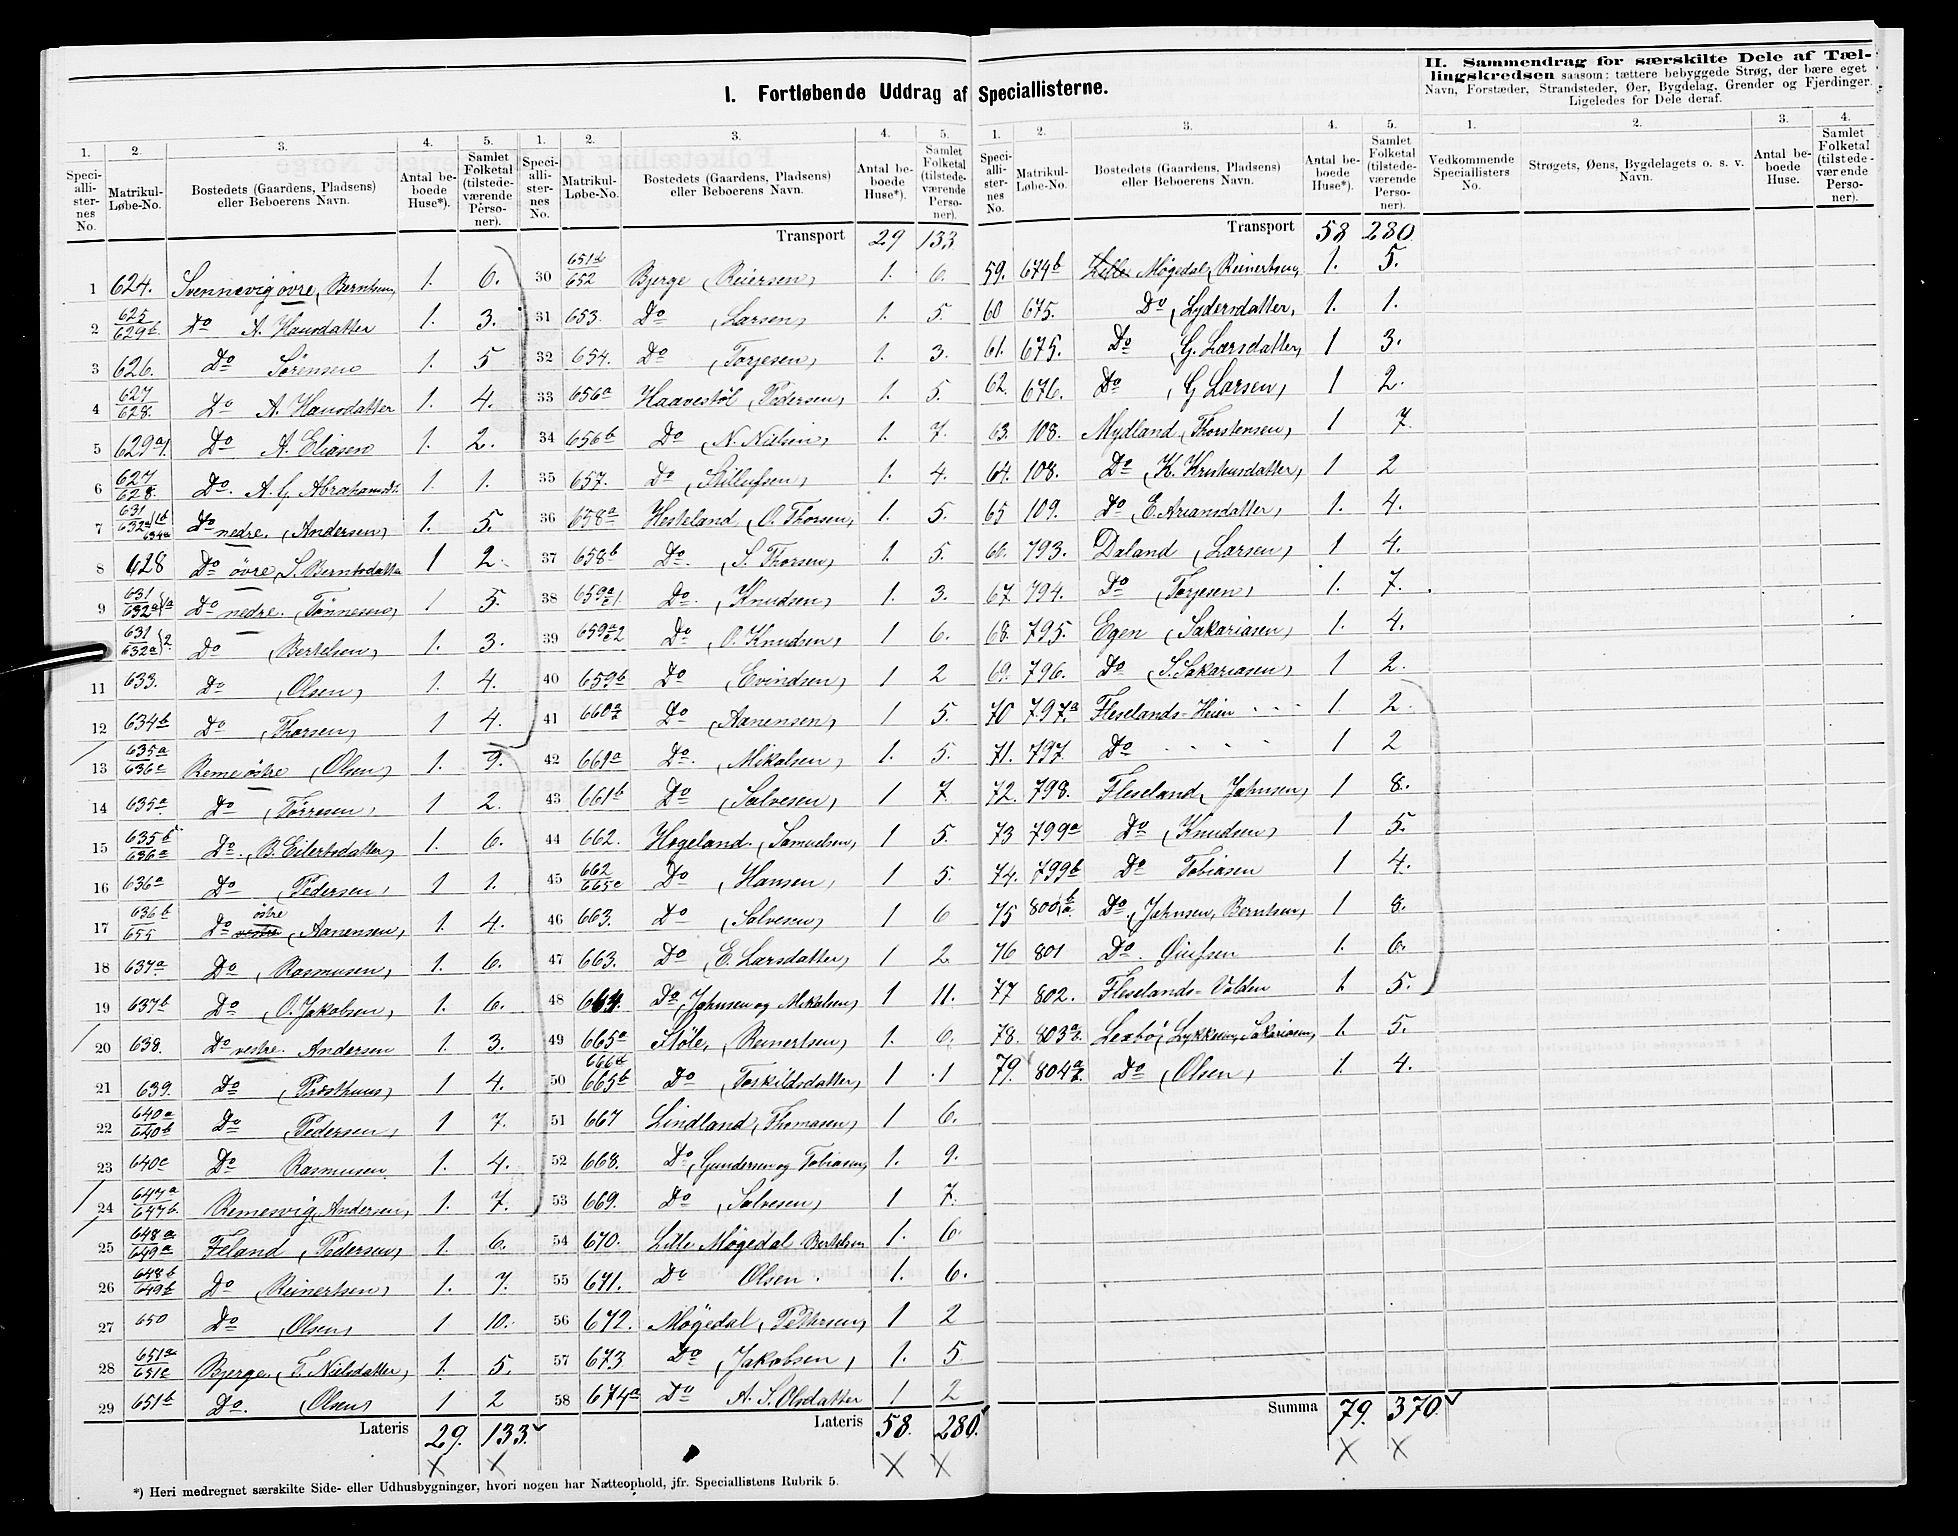 I. Fortløbende Uddrag af Speciallisterne.
II. Sammendrag for særskilte Dele af Tællingskredsen saasom: tættere bebyggede Strøg, der bære eget
Navn, Forstæder, Strandsteder, Øer, Bygdelag, Grender og Fjerdinger.
Ligeledes for Dele deraf.
1. 2. 3. 4. 5.
Speciallisternes No. Matrikul-Løbe-No. Bostedets (Gaardens, Pladsens) eller Beboerens Navn. Antal beboede Huse*). Samlet Folketal (tilstedeværende Personer).
1 624. Svennevig övre, Berntsen, 1. 6.
2 625/629b. Do A. Hansdatter 1. 3.
3 626. Do Sörensen 1. 5
4 627/628. Do A. Hansdatter 1. 4.
5 629a1. Do A. Eliasen 1. 2.
6 627/628. Do. A. G. Abrahamsdt. 1 1.
7 631/632a 1b 634a Do nedre, (Andersen) 1. 5.
8 628 Do övre, S. Berntsdatter 1 2.
9 631/632a 1a Do nedre. (Tönnesen) 1 5.
631/632a 2. Do (Bertelsen) 1. 3.
11 633. Do (Olsen) 1. 4.
12 634b Do (Thorsen) 1 4.
13 635a/636c Reme östre (Olsen) 1. 9.
14 635a Do (Törresen) 1 2.
15 635b/636a Do. (B. Eilertsdatter) 1. 6.
16 636a Do (Pedersen) 1 1.
17 636b/655 Do vestre östre (Aanensen) 1. 4.
18 637a Do (Rasmusen) 1. 6.
19 637b Do (O. Jakobsen) 1. 6.
20 638. Do vestre. Andersen 1. 3.
21 639. Do (Præsthuus) 1 4.
22 640a/640b Do (Pedersen) 1 7.
23 640c Do Rasmusen 1. 4.
24 647a/647b. Remesvig, Andersen, 1. 7.
25 648a/649a Feland (Pedersen) 1. 6.
26 648b/649b Do (Reinertsen) 1. 7.
27 650 Do (Olsen) 1 10.
28 651a/651c Bjerge (T. Nielsdatter) 1. 5.
29 651b Do. (Olsen) 1 2
Lateris 29. 133.
1. 2. 3. 4. 5.
Speciallisternes No. Matrikul-Løbe-No. Bostedets (Gaardens, Pladsens) eller Beboerens Navn. Antal beboede Huse*). Samlet Folketal (tilstedeværende Personer).
Transport 29 133
30 651d/652 Bjerge (Reiersen) 1. 6.
31 653. Do (Larsen) 1. 5.
32 654. Do (Torjesen) 1. 3.
33 656a Haavestöl (Pedersen) 1. 5.
34 656b Do (N. Nielsen) 1. 7.
35 657. Do (Stillufsen) 1. 4.
36 658a Hesteland (O. Thorsen) 1. 5.
37 658b Do. (S. Thorsen) 1. 5
38 Do. (Knudsen) 1. 3.
39 Do (O. Knudsen) 1 6.
40 659b Do (Evindsen) 1 2
41 Do (Aanensen) 1 5.
42 661a Do. (Mikalsen) 1. 5.
43 661b Do (Salvesen) 1 7.
44 662. Hogeland. (Samuelsen) 1 5.
45 662/665c Do (Hansen) 1 5.
46 663. Do (Salvesen) 1 6
47 663. Do (E. Larsdatter) 1 2.
48 664. Do (Jahnsen og Mikalsen) 1 11.
49 665a Stöle, (Reinertsen) 1. 6.
50 665b Do (Toskildsdatter) 1 1
51 667 Lindland, (Thomasen) 1 6.
52 668. Do (Gundersen og Tobiasen) 1. 9.
53 669. Do (Salvesen) 1 7.
54 670. Lille Mögedal Bertelsen 1. 6.
55 671. Do Olsen. 1. 6.
56 672. Mögedal, (Pettersen) 1 2
57 673 Do (Jakobsen) 1. 5
58 674a Do A. S. Olsdatter 1 2
Lateris 58. 280.
1. 2. 3. 4. 5.
Speciallisternes No. Matrikul-Løbe-No. Bostedets (Gaardens, Pladsens) eller Beboerens Navn. Antal beboede Huse*). Samlet Folketal (tilstedeværende Personer).
Transport 58 280
59. 674b Lille Mögedal (Reinertsen) 1. 5.
60 675. Do (Lydersdatter) 1. 1.
61. 675. Do (G. Larsdatter) 1 3.
62. 676. Do (G Larsen) 1 2.
63. 108. Mydland (Thorstensen) 1 7.
64. 108. Do (K. Kristensdatter) 1 2
65 109. Do (E. Ariansdatter) 1. 4.
66. 793. Daland (Larsen) 1 4.
67. 794. Do (Torjesen) 1. 7.
68. 795. Egen (Sakariasen) 1. 4.
69. 796. Do (S. Sakariasen) 1 2.
70 797a Fleselands-Heien 1 2.
71. 797. Do 1 2
72. 798. Fleseland, (Jahnsen) 1 8.
73 799a Do (Knudsen) 1 5.
74. 799b Do Tobiasen 1 4.
75 800 Do (Jahnsen, Berntsen) 1 8.
76 801 Do. 1. 6.
77 802. Fleselands-Volden 1. 5.
78. 803 Sakariasen 1. 5.
79. 804 Do (Olsen) 1. 4.
Summa 79. 370.
1. 2. 3. 4.
Vedkommende Speciallisters No. Strøgets, Øens, Bygdelagets o. s. v. Navn. Antal beboede Huse. Samlet Folketal (tilstedeværende Personer).
*) Heri medregnet særskilte Side- eller Udhusbygninger, hvori nogen har Natteophold, jfr. Speciallistens Rubrik 5.